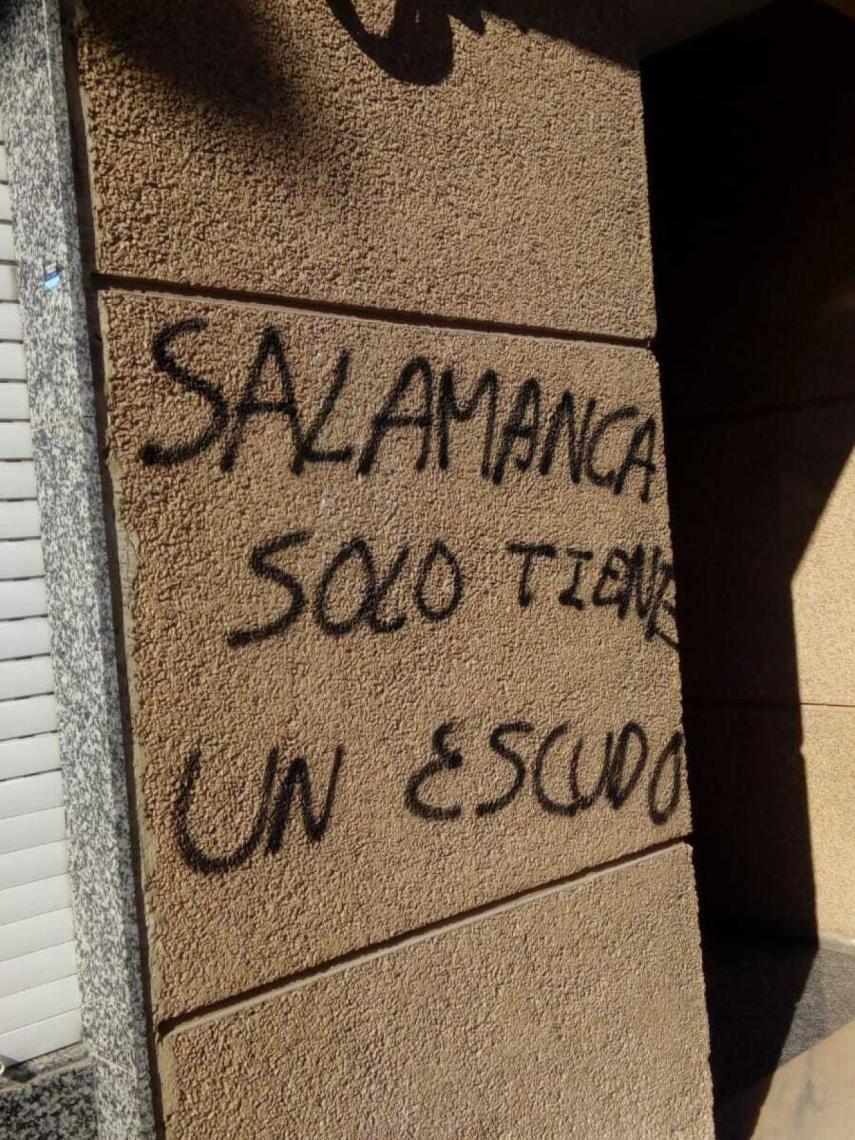 SALAMANCA
SOLO TIENE
UN ESCUDO